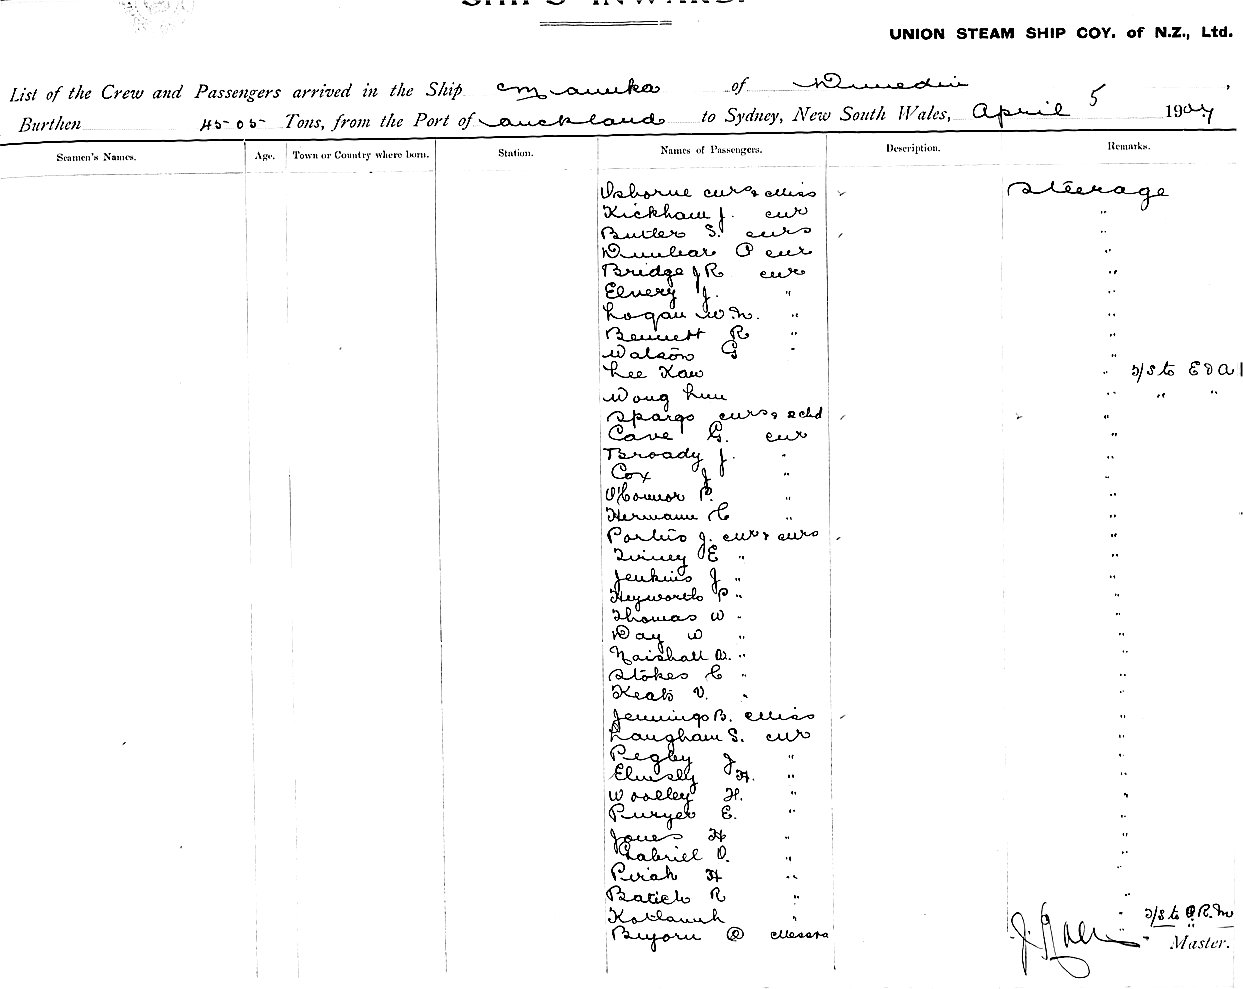 SHIPS INWARD.
UNION STEAM SHIP COY. of N.Z., Ltd.
List of the Crew and Passengers arrived in the Ship Manuka of Dunedin,
Burthen 4505 Tons, from the Port of Auckland to Sydney, New South Wales, April 5 1907
Seamen's Names. Age. Town or Country where born. Station. Names of Passengers. Description. Remarks.
Osborne Mr & Miss Steerage
Kickham J. Mr "
Butler S. Mrs "
Dunbar P Mr "
Bridge J R Mr "
Elvery J. " "
Logan W M. " "
Bennett R " "
Watson G " "
Lee Kaw "
Wong Lun " " "
Spargo Mrs & 2chd "
Cave G. Mr "
Broady J. " "
Cox J " "
O'Connor P. " "
Hermann C " "
J. Mr & Mrs "
E " "
Jenkins J " "
Heyworth P " "
Thomas W " "
Day W " "
Naishall " "
Stokes C " "
Keats V. " "
Jennings B. Miss "
Langham S. Mr "
Pegley J " "
H. " "
Woolley H. " "
E. " "
Jones H " "
Gabriel D. " "
H " "
R " "
" "
Master.